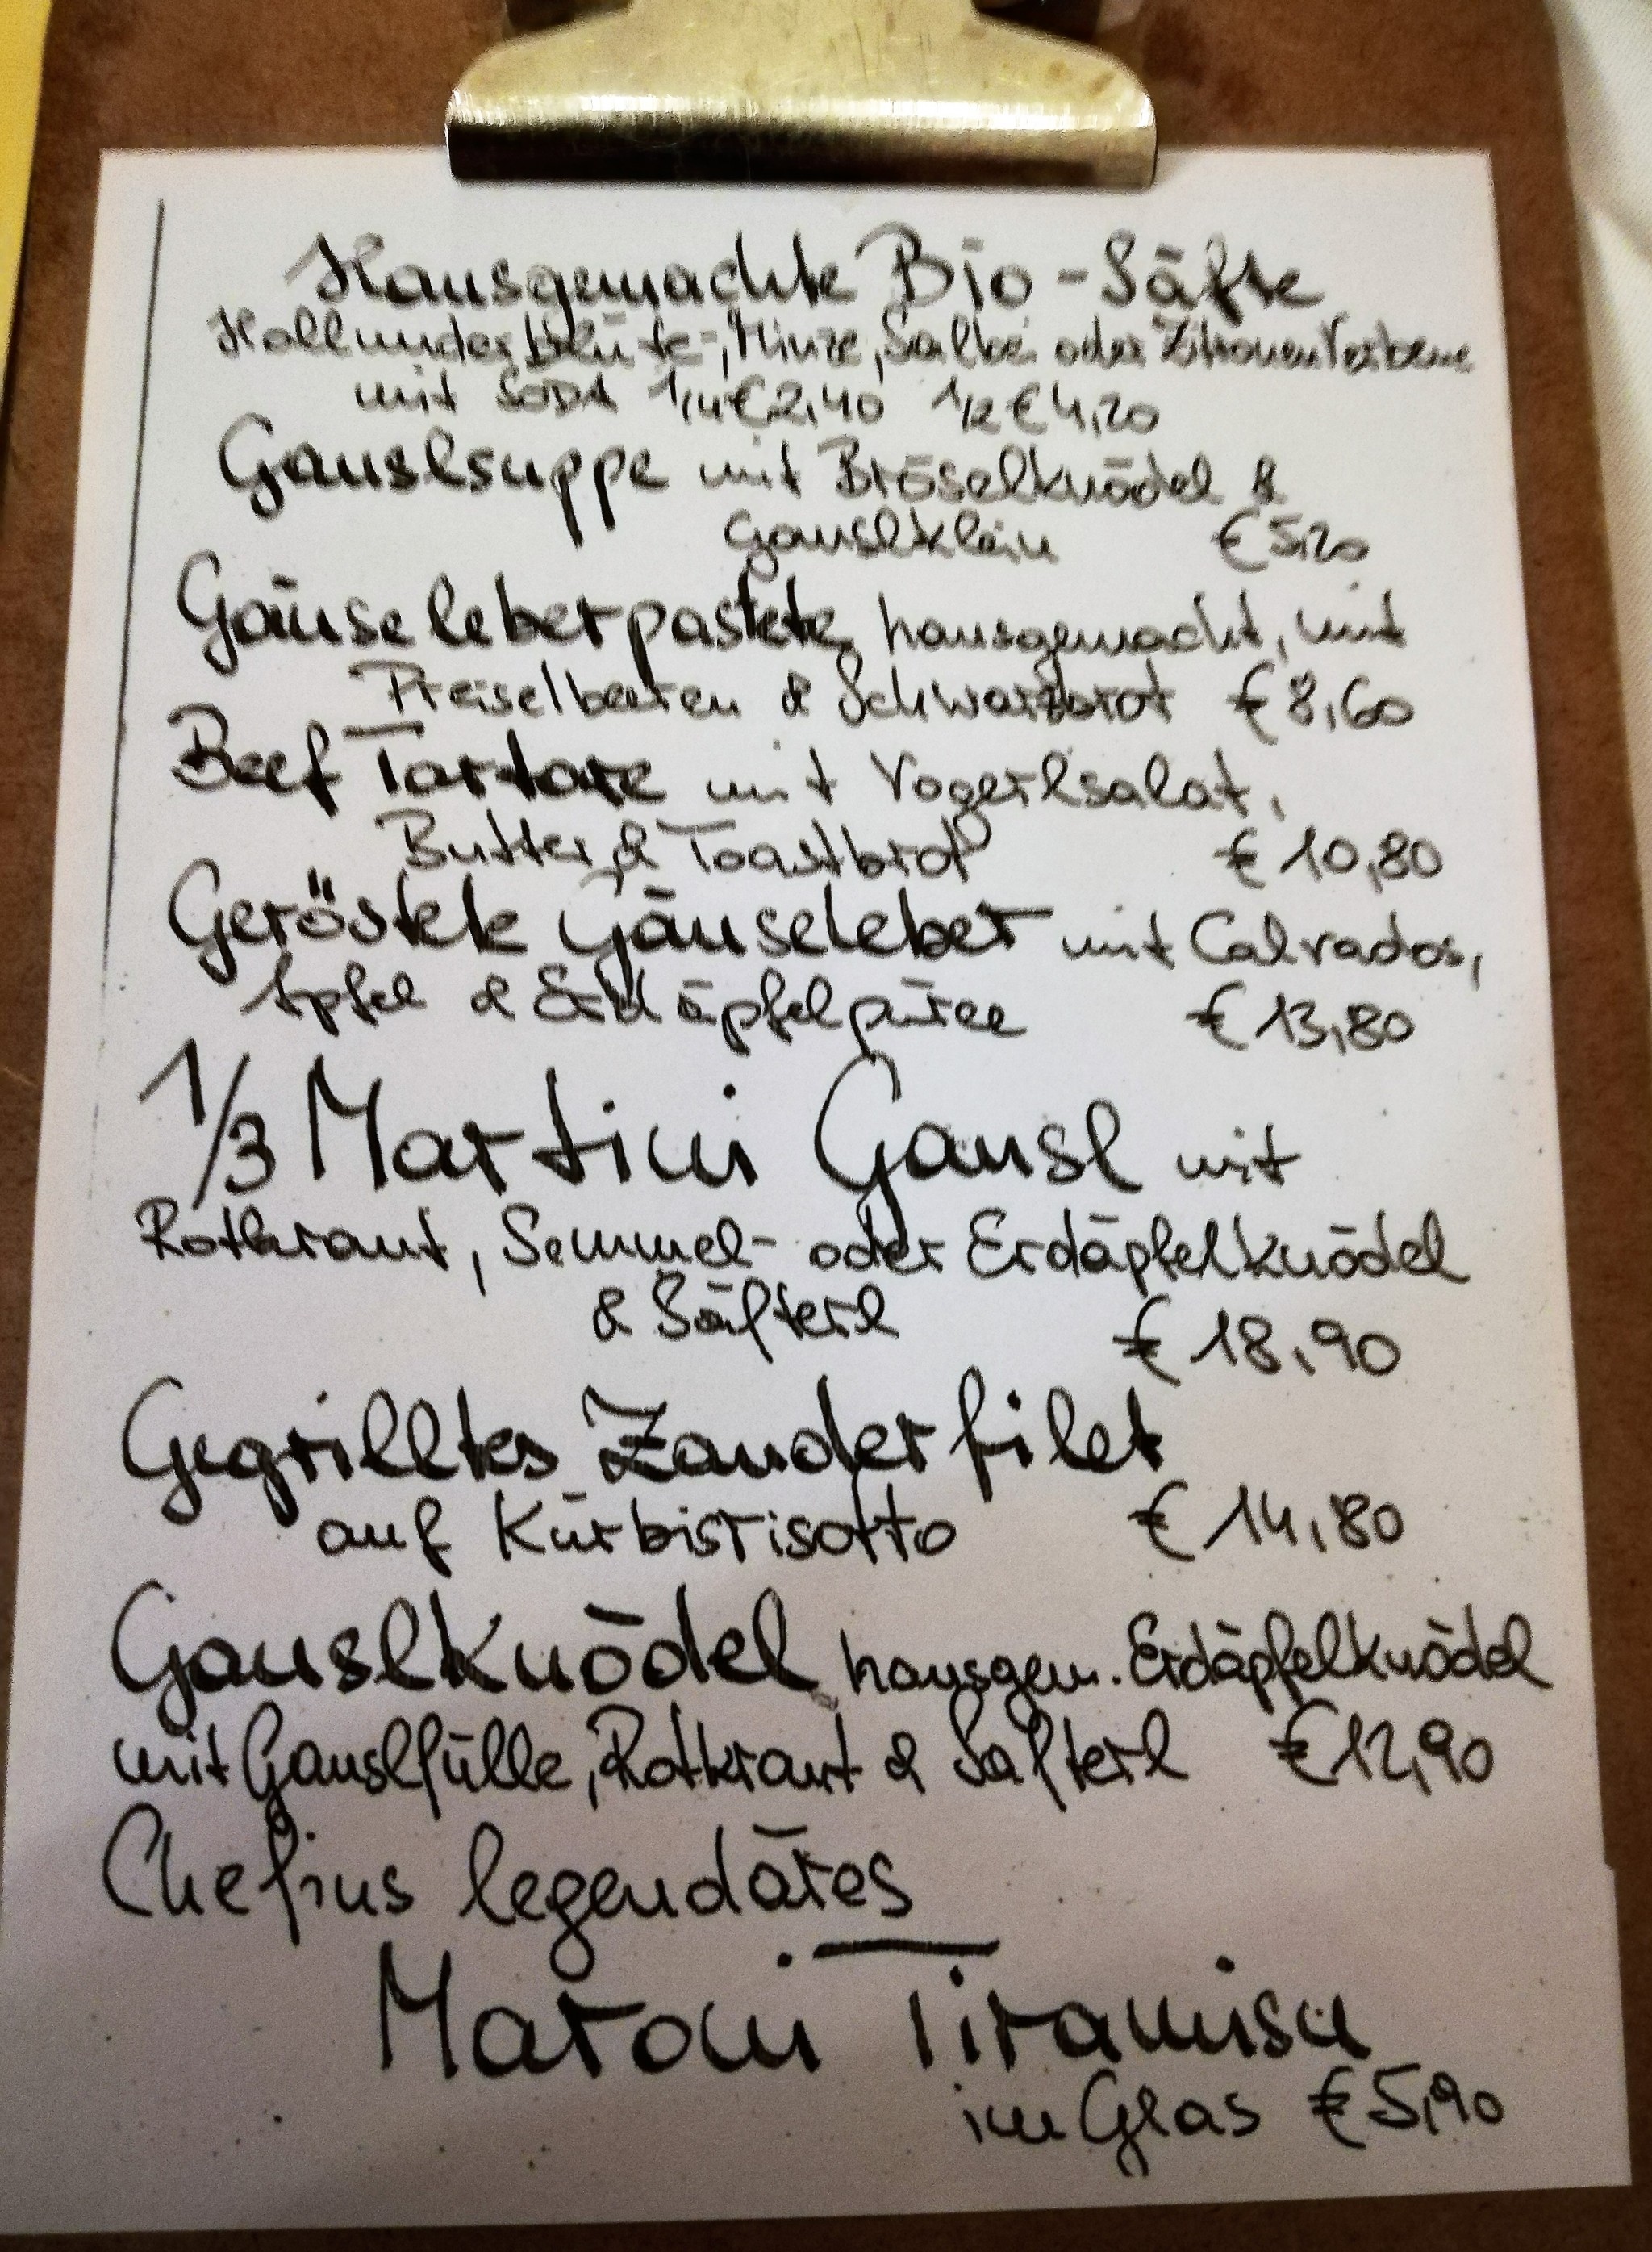 Hausgemachte Bio-Säfte
Hollunderblüte-, Minze, Salbei oder Zitronenverbene
mit SODA 1/4 € 2,40 1/2 € 4,20
Gauslsuppe mit Bröselknödel &
Gauslklein € 5,20
Gänseleberpastete, hausgemacht, mit
Preiselbeeren & Schwarzbrot € 8,60
Beef Tartare mit Vogerlsalat,
Butter & Toastbrot € 10,80
Geröstete Gänseleber mit Calvados,
Apfel & Erdäpfelpüree € 13,80
1/3 Martini Gansl mit
Rotkraut, Semmel- oder Erdäpfelknödel
& Säfterl € 18,90
Gegrilltes Zanderfilet
auf Kürbisrisotto € 14,80
Ganslknödel, hausgem. Erdäpfelknödel
mit Ganslfülle, Rotkraut & Safterl € 12,90
Chefins legendäres
Maroni Tiramisu
im Glas € 5,90